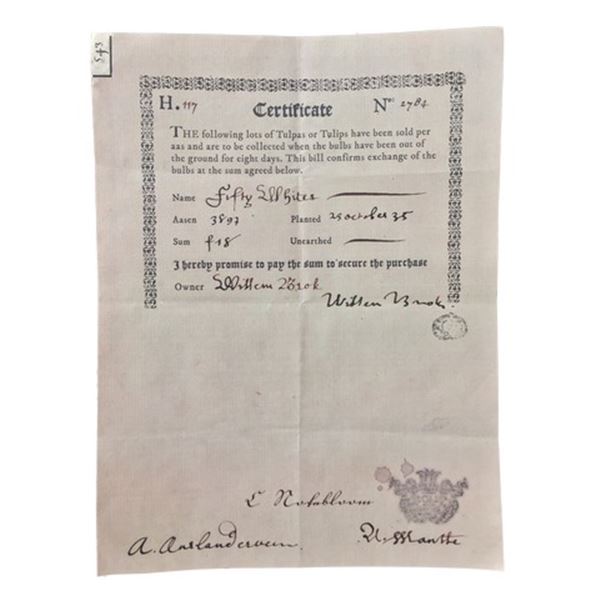 543
H. 117 Certificate Nº 2784
THE following lots of Tulpas or Tulips have been sold per
aas and are to be collected when the bulbs have been out of
the ground for eight days. This bill confirms exchange of the
bulbs at the sum agreed below.
Name Fifty Whites
Aasen 3897 Planted 23 october 35
Sum f18 Unearthed
I hereby promise to pay the sum to secure the purchase
Owner Willem Brok
Willem Brok
C Notebloom
A.